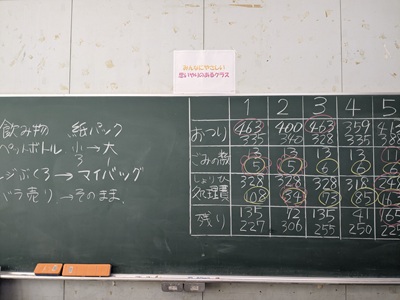 みんなにやさしい
思いやりのあるクラス
飲み物 紙パック
ペットボトル 小→大
3 1
レジぶくろ→マイバッグ
バラ売り→そのまま
1 2 3 4 5
おつり 463 400 463 359 413
335 340 328 335 388
ごみの数 13 13 13 13 11
5 5 6 6 6
しょりひ
処理費 328 328 328 318 248
108 34 73 85 163
残り 135 72 135 41 165
227 306 255 250 225